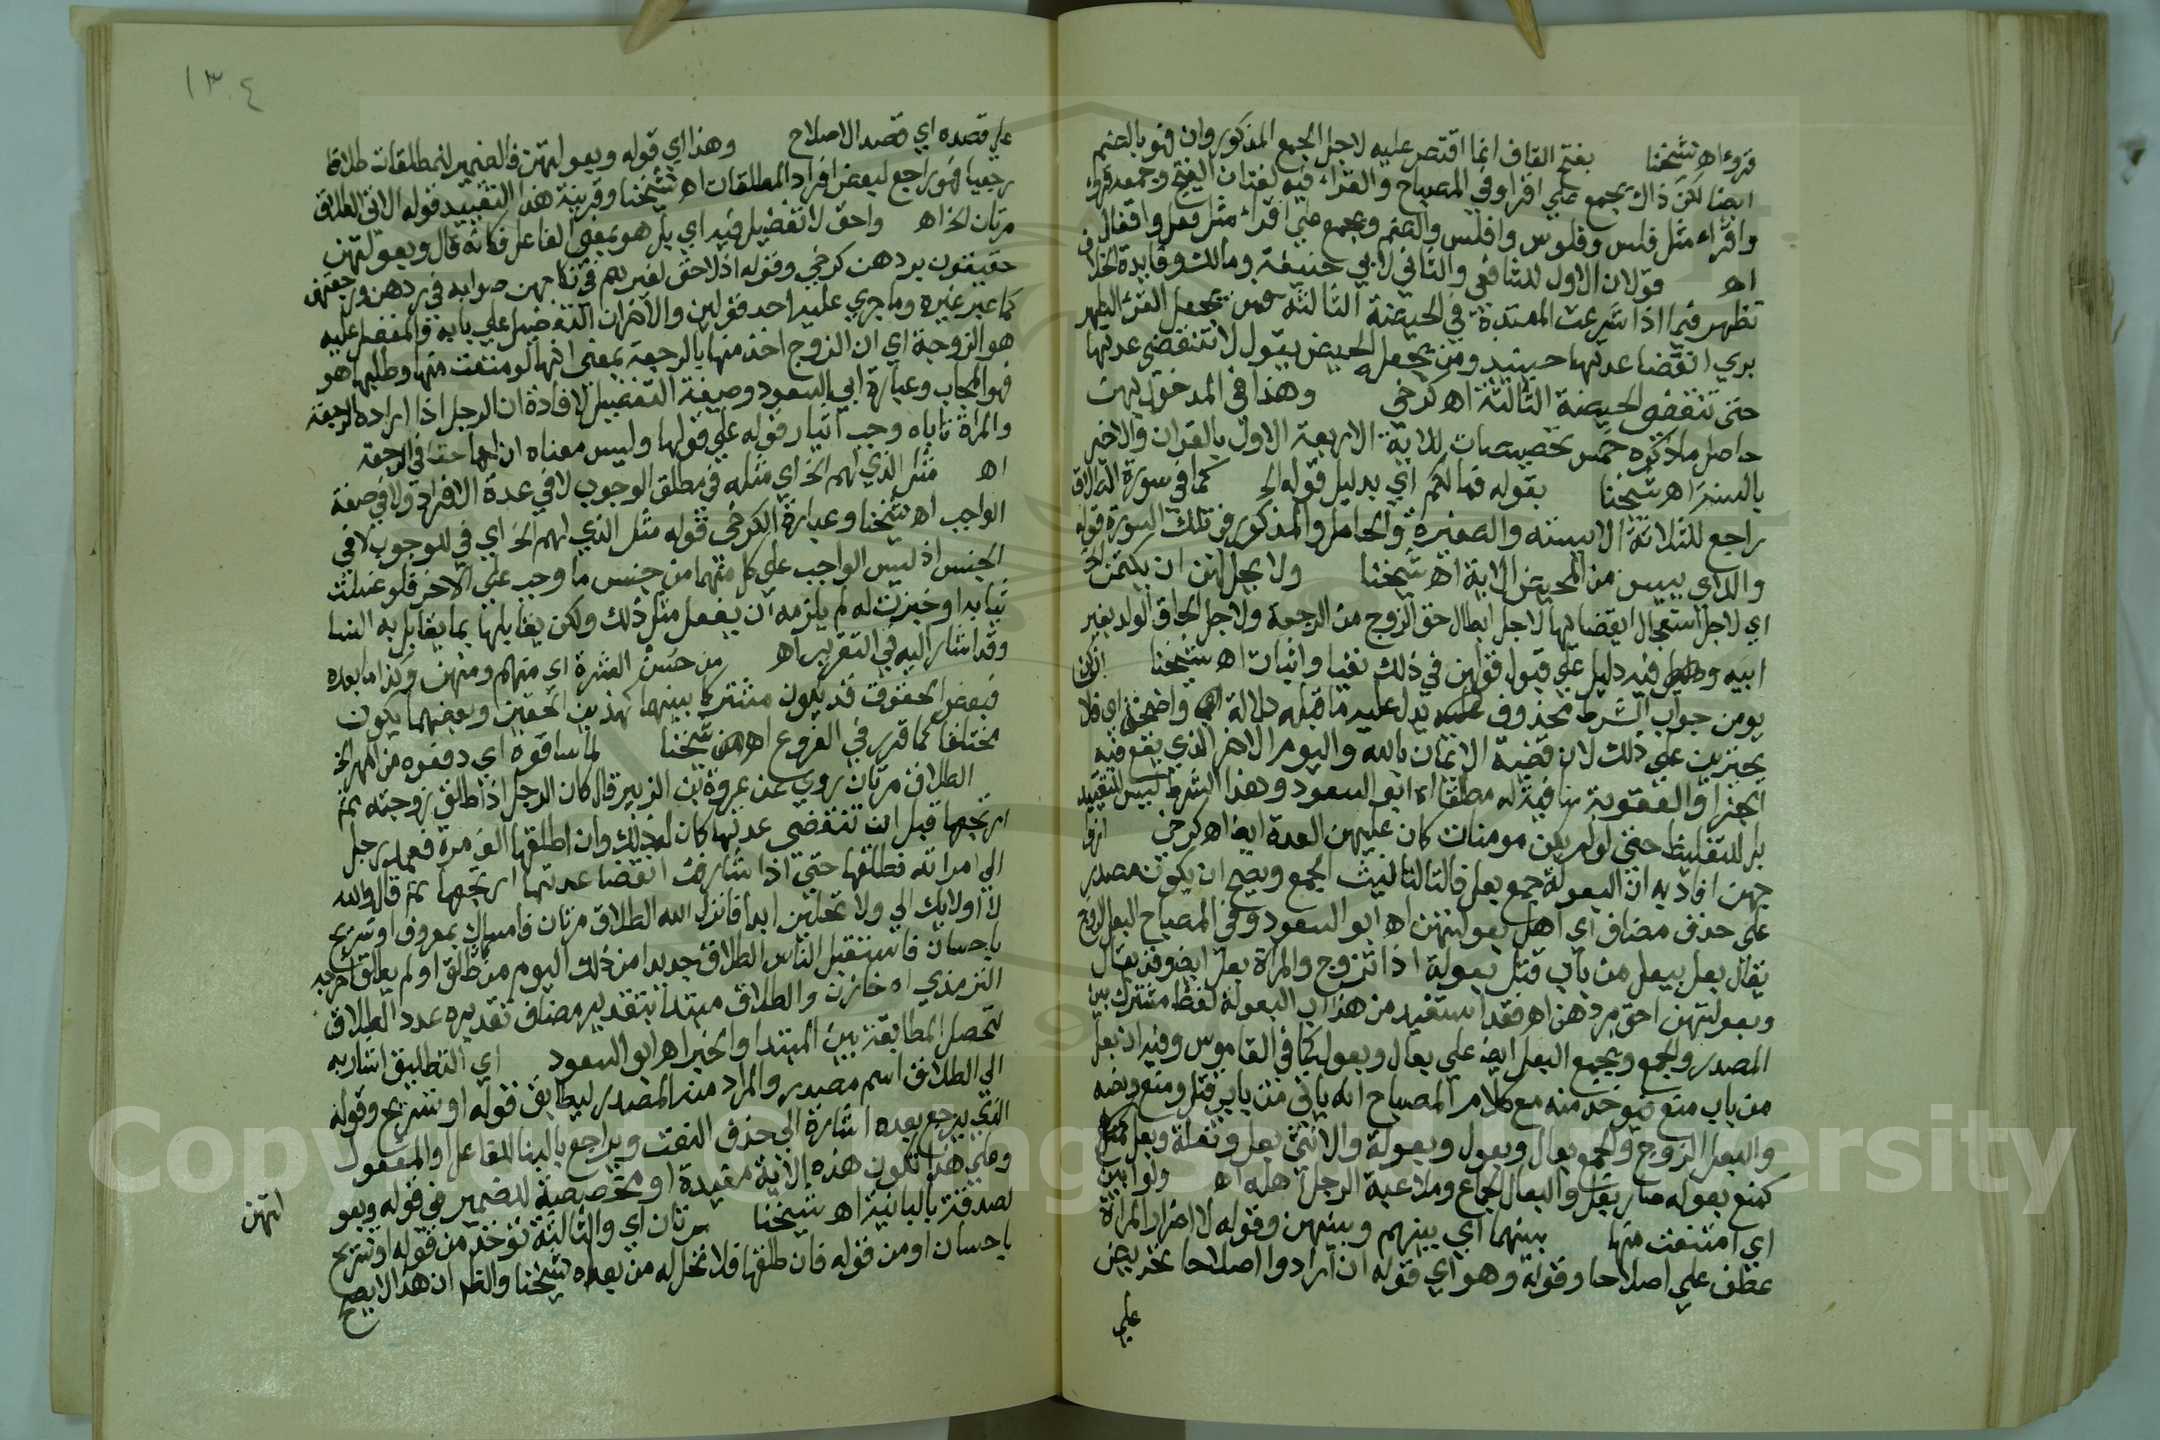 قروء اه شيخنا بفتح القاف انما اقتصر عليه لاجل الجمع المذكور وان فهو بالضم
ايضا لكن ذاك يجمع علي اقراء وفي المصباح والقرء فيه لغتان الفتح وجمعه قروء
واقرء مثل فلس وفلوس وافلس والضم ويجمع علي اقراء مثل قفل واقفال
اه قولان الاول للشافعي والثاني لابي حنيفة ومالك وفايدة الخلاف
تظهر فيما اذا شرعت المعتدة في الحيضة الثالثة فمن يجعل القرء الطهر
يري انقضا عدتها حينيذ ومن يجعله الحيض يقول لا تنقضي عدتها
حتي تنقضي الحيضة الثالثة اه كرخي وهذا في المدخول بهن
حاصل ما ذكره خمس تخصيصات للاية الاربعة الاول بالقران والاخير
بالسنة اه شيخنا بقوله فما لكم اي بدليل قوله الخ كما في سورة الطلاق
راجع للثلاثة الايسة والصغيرة والحامل والمذكور في تلك السورة قوله
واللاي ييسن من المحيض الاية اه شيخنا ولا يحل لهن ان يكتمن الخ
اي لاجل استعجال انقضايها لاجل ابطال حق الزوج من الرجعة ولاجل الحاق الولد بغير
ابيه وفيه دليل علي قبول قولهن في ذلك نفيا واثبات اه شيخنا ان كن
يومن جواب الشرط محذوف يدل عليه ما قبله دلالة واضحة اي فلا
يجترين علي ذلك لان قضية الايمان بالله واليوم الاخر الذي يقع فيه
الجزا والعقوبة منافية له مطلقا اه ابو السعود وهذا الشرط ليس للتقييد
بل للتغليظ حتي لو لم يكن مومنات كان عليهن العدة ايضا اه كرخي ازوا
جهن افاد به ان البعولة جمع بعل فالتا لتانيث الجمع ويصح ان يكون مصدر
علي حذف مضاف اي اهل بعولتهن اه ابو السعود وفي المصباح البعل الزوج
يقال بعل يبعل من باب قتل بعولة اذا تزوج والمراة بعل ايضا وقد يقال
وبعولتهن احق بردهن اه فقد استفيد من هذا ان البعولة لفظ مشترك بين
المصدر والجمع ويجمع البعل ايضا علي بعال وبعول كما في القاموس وفيه ان بعل
من باب منع فيوخذ منه مع كلام المصباح انه ياتي من باب قتل ومنع ونصه
والبعل الزوج والجمع بعال وبعول وبعولة والانثي بعل وبعلة وبعل
كمنع بعوله صار بعلا والبعال الجماع وملاعبة الرجل اهله اه ولو ابين
اي امتنعت منها بينهما اي بينهم وبينهن وقوله لا اضرار المراة
عطف علي اصلاحا وقوله وهو اي قوله ان ارادوا اصلاحا تحريض
علي
١٣٤
علي قصده اي قصد الاصلاح وهذا اي قوله وبعولتهن فالضمير للمطلقات طلاقا
رجعيا فهو راجع لبعض افراد المطلقات اه شيخنا وقرينة هذا التقييد قوله الاتي الطلاق
مرتان الخ اه واحق لا تفضيل فيه اي بل هو بمعني الفاعل فكانه قال وبعولتهن
حقيقون بردهن كرخي وقوله اذ لا حق لغيرهم في نكاحهن صوابه في ردهن ورجعتهن
كما عبر غيره وما جري عليه احد قولين والاخر ان التفضيل علي بابه والمفضل عليه
هو الزوجة اي ان الزوج احق منها بالرجعة بمعني انها لو منعت منها وطلبها هو
فهو المجاب وعبارة ابي السعود وصيغة التفضيل لافادة ان الرجل اذا اراد الرجعة
والمراة تاباه وجب ايثار قوله علي قولها وليس معناه ان لها حقا في الرجعة
اه مثل الذي لهم الخ اي مثله في مطلق الوجوب لا في عدة الافراد ولا في صفة
الواجب اه شيخنا وعبارة الكرخي قوله مثل الذي لهم الخ اي في الوجوب لا في
الجنس اذ ليس الواجب علي كل منهما من جنس ما وجب علي الاخر فلو غسلت
ثيابه او خبزت له لم يلزمه ان يفعل مثل ذلك ولكن يقابلها بما يقابل به النسا
وقد اشار اليه في التقرير اه من حسن العشرة اي منهم ومنهن وكذا ما بعده
فبعض الحقوق قد يكون مشتركا بينهما كهذين الحقين وبعضهما يكون
مختلفا كما قدر في الفروع اه شيخنا لما ساقوه اي دفعوه من المهر الخ
الطلاق مرتان روي عن عروة بن الزبير قال كان الرجل اذا طلق زوجته ثم
ارتجعها قبل ان تنقضي عدتها كان له ذلك وان طلقها الف مرة فعمد رجل
الي امراته فطلقها حتي اذا شارفت انقضا عدتها ارتجعها ثم قال والله
لا اويك الي ولا تحلين ابدا فانزل الله الطلاق مرتان فامساك بمعروف او تسريح
باحسان فاستقبل الناس الطلاق جديدا من ذلك اليوم من طلق او لم يطلق اخرجه
الترمذي اه خازن والطلاق مبتدا بتقدير مضاف تقديره عدد الطلاق
لتحصل المطابقة بين المبتدا والخبر اه ابو السعود اي التطليق اشار به
الي الطلاق اسم مصدر والمراد منه المصدر ليطابق قوله او تسريح وقوله
الذي يرجع بعده اشارة الي حذف النعت ويراجع بالبنا للفاعل او المفعول
وعلي هذا تكون هذه الاية مقيدة او مخصصة للضمير في قوله وبعو
لتهن
لصدقته بالباينة اه شيخنا مرتان اي والثالثة توخذ من قوله او تسريح
باحسان او من قوله فان طلقها فلا تحل له من بعد اه شيخنا والظاهر ان هذا لا يصح